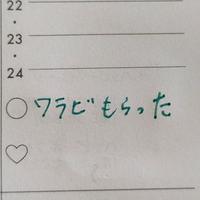 22
・
23
・
24
ワラビもらった